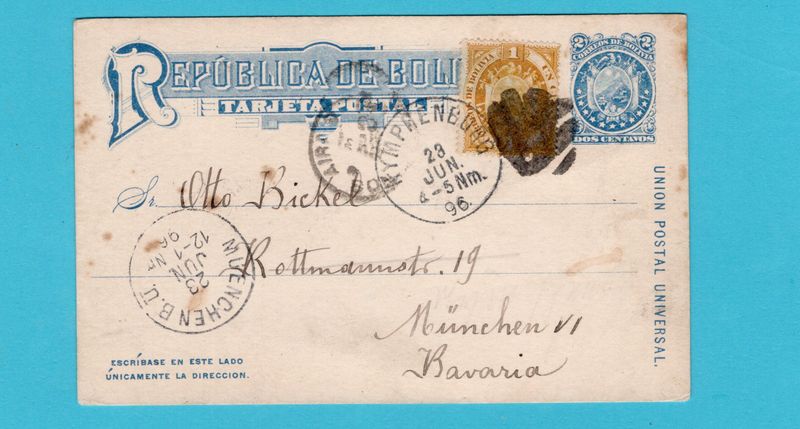 REPÚBLICA DE BOLI
TARJETA POSTAL
1
DE BOLIVIA
UN C
2 2
CORREOS DE BOLIVIA
DOS CENTAVOS
NYMPHENBURG
23
JUN.
4-5Nm.
96.
Sr. Otto Bickel
Rottmannstr. 19
München VI
Bavaria
MUENCHEN B.Ü.
23
JUN
12-1 Nm
96
UNION POSTAL UNIVERSAL.
ESCRÍBASE EN ESTE LADO
ÚNICAMENTE LA DIRECCION.